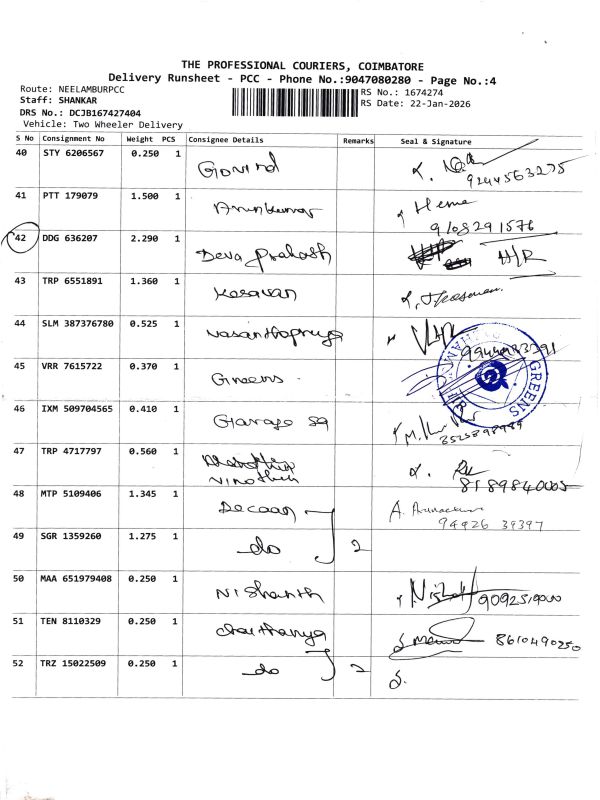 THE PROFESSIONAL COURIERS, COIMBATORE
Delivery Runsheet - PCC - Phone No.:9047080280 - Page No.:4
Route: NEELAMBURPCC
RS No.: 1674274
Staff: SHANKAR
RS Date: 22-Jan-2026
DRS No.: DCJB167427404
Vehicle: Two Wheeler Delivery
S No Consignment No Weight PCS Consignee Details Remarks Seal & Signature
40 STY 6206567 0.250 1 Govind
41 PTT 179079 1.500 1 Arunkumar Hema
9108291576
42 DDG 636207 2.290 1 Deva Prakash H/R
43 TRP 6551891 1.360 1 Kesavan
44 SLM 387376780 0.525 1 Vasanthapriya
45 VRR 7615722 0.370 1 Greens GREENS
46 IXM 509704565 0.410 1 Garage 59
47 TRP 4717797 0.560 1 Vinothin
8189840005
48 MTP 5109406 1.345 1 Decaan A.
94426 39397
49 SGR 1359260 1.275 1 do 2
50 MAA 651979408 0.250 1 Nishanth
51 TEN 8110329 0.250 1 Chaithanya 8610490250
52 TRZ 15022509 0.250 1 do 2